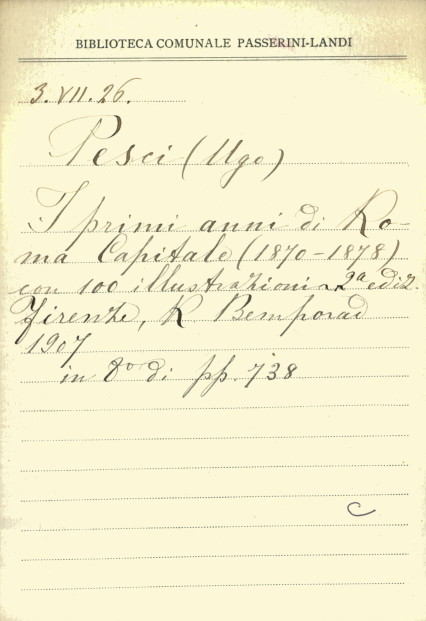 BIBLIOTECA COMUNALE PASSERINI-LANDI
3.VII.26.
Pesci (Ugo)
I primi anni di Ro-
ma Capitale (1870-1878)
con 100 illustrazioni 2ª ediz.
Firenze, R Bemporad
1907
in 8º di pp. 738
C